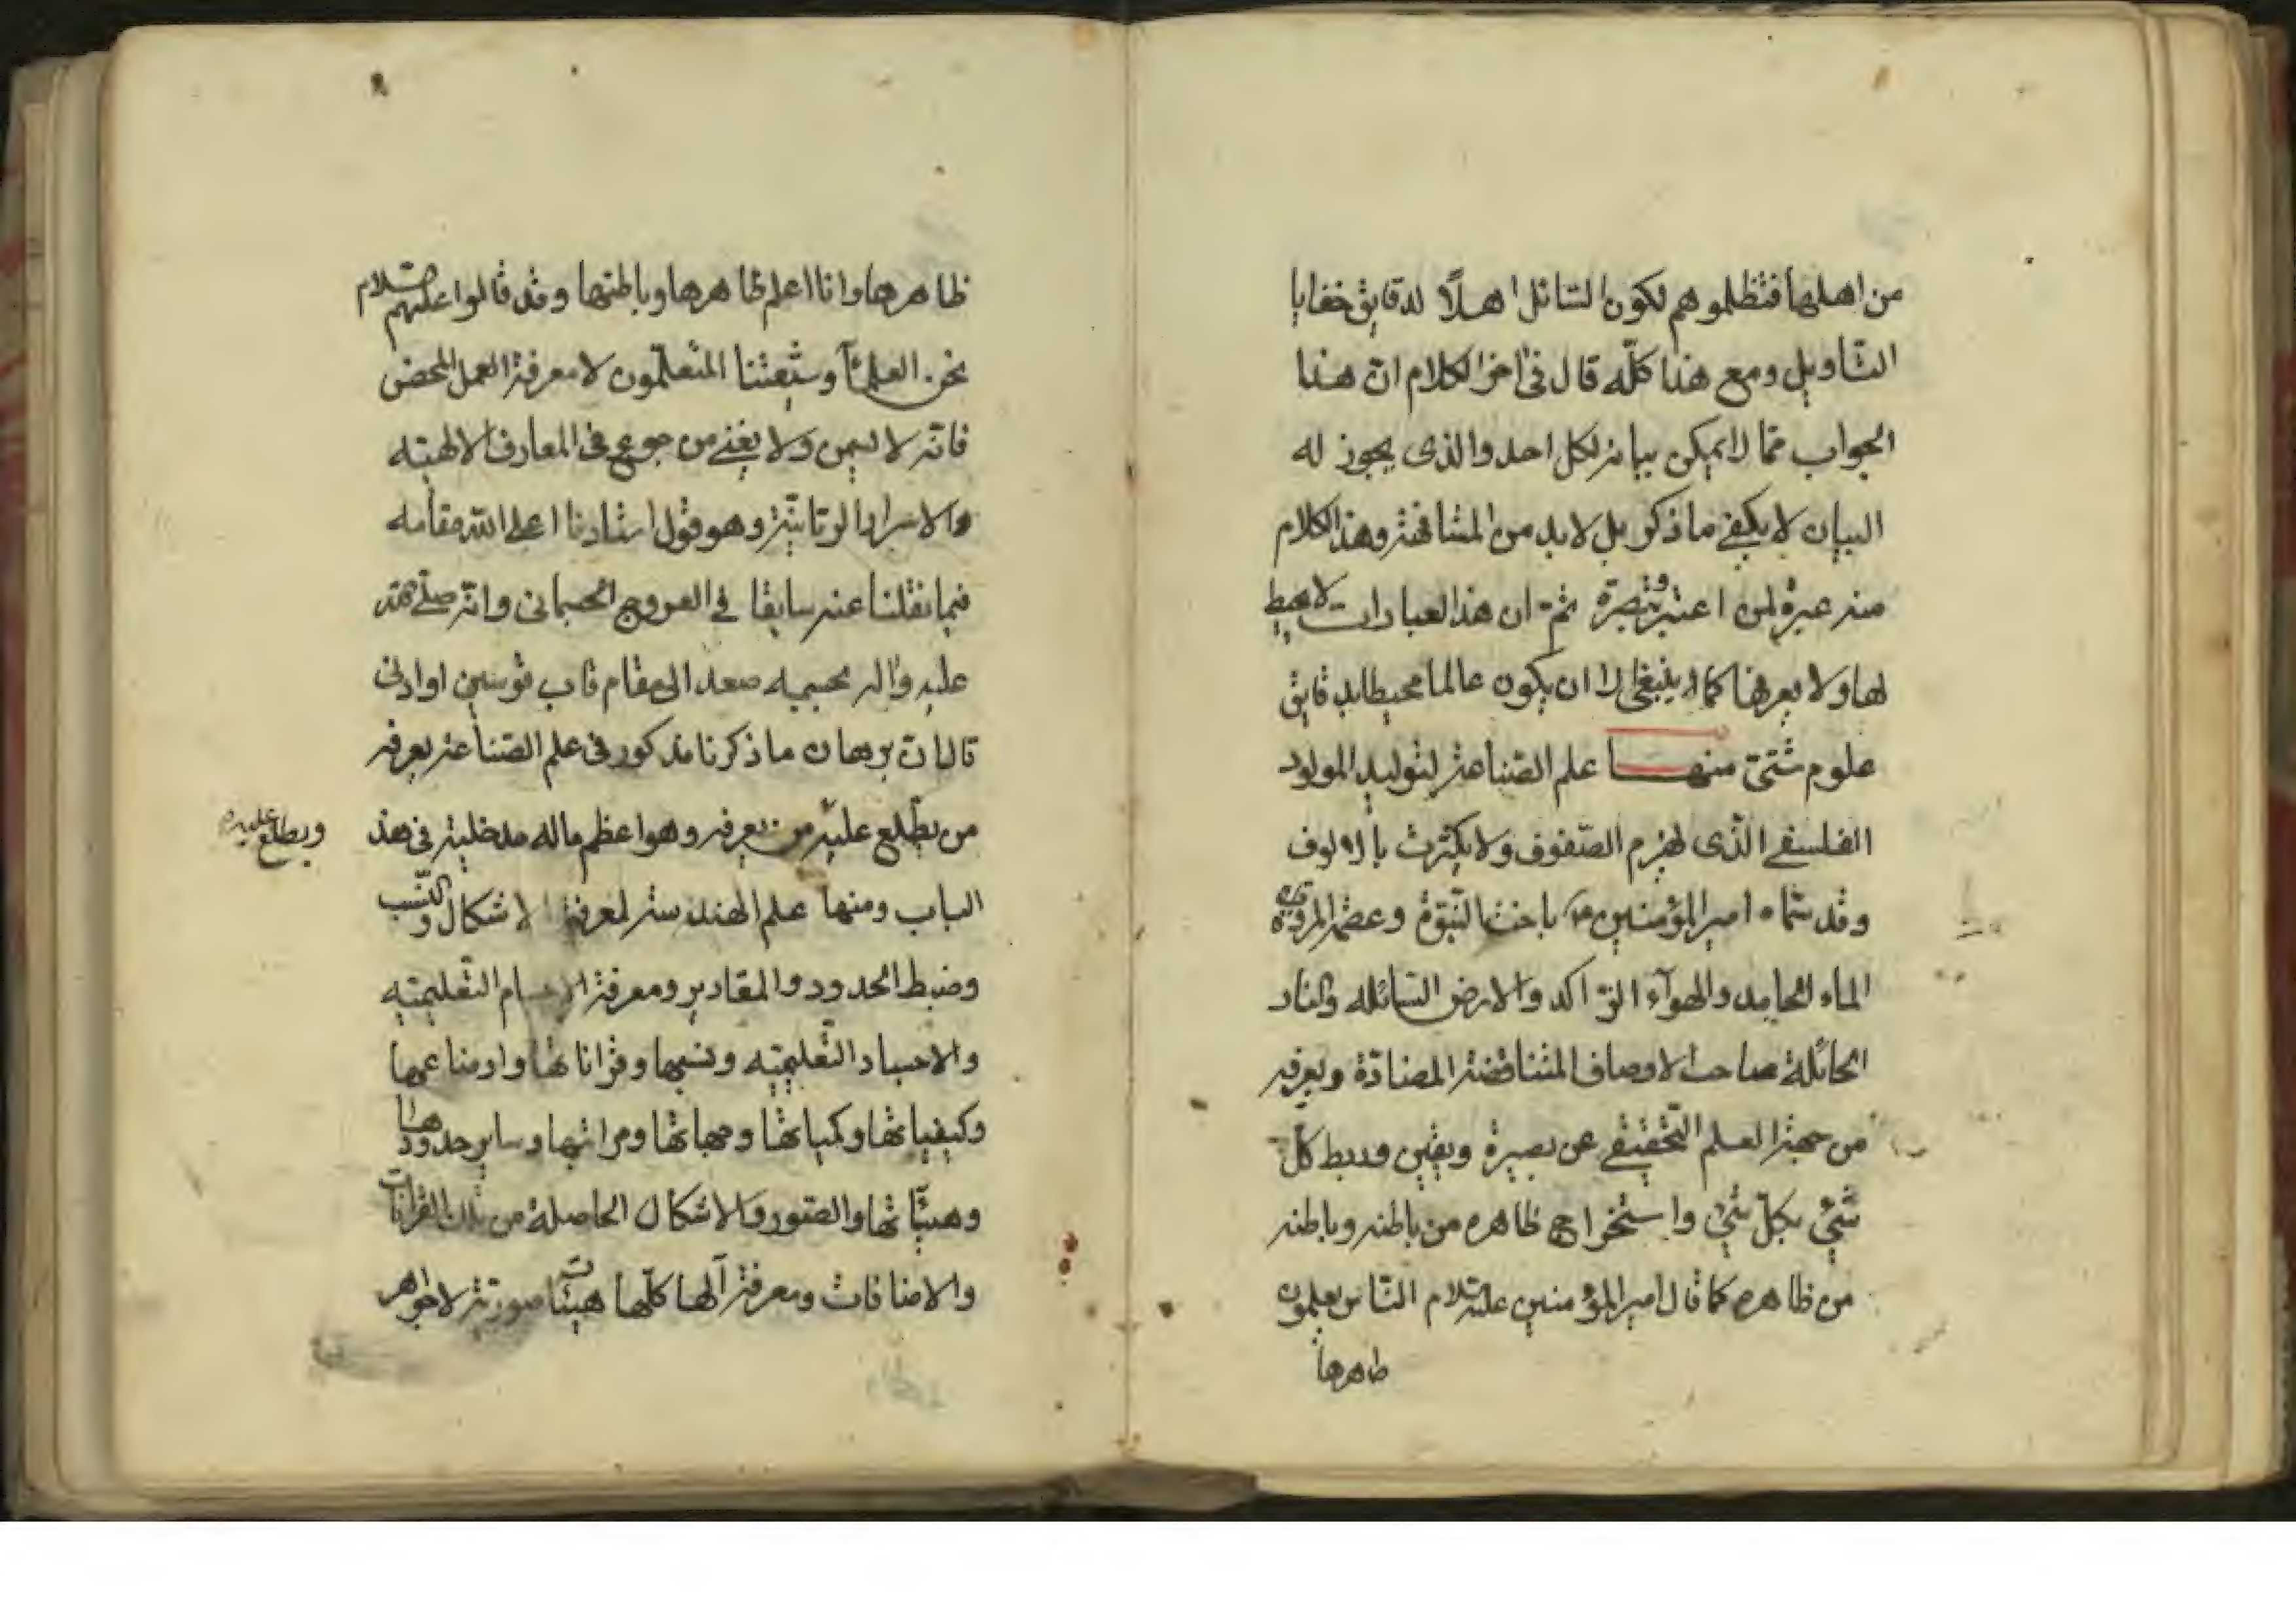 من اهلها فتظلموهم لكون السائل اهلًا لدقايق خفايا
التاويل ومع هذا كلّه قال فى اخر الكلام انّ هذا
الجواب ممّا لا يمكن بيانه لكل احد والذى يجوز له
البيان لا يكفى ما ذكر بل لابد من المشافهة وهذا الكلام
منه عبرة لمن اعتبر وتبصرة ثمّ ان هذا العبارات لا يحيط
لها ولا يعرفها كما ينبغى الا ان يكون عالما محيطا بدقايق
علوم شتىّ منهــا علم الصّناعة لتوليد المولود
الفلسفى الذّى يهزم الصّفوف ولا يكترث بالالوف
وقد سمّاه امير المؤمنين ع باخت النّبوّة وعصمة المروّة
الماء الجامد والهوآء الرّاكد والارض السّائله والنار
الحائلة صاحب الاوصاف المتناقضة المضادّة ويعرفه
من جهة العلم التّحقيقى عن بصيرة ويقين وربط كلّ
شىّء بكلّ شىء واستخراج ظاهره من باطنه وباطنه
من ظاهره كما قال امير المؤمنين عليه السلام النّاس يعلمون
ظاهرها
ظاهرها وانا اعلم ظاهرها وباطنها وقد قالوا عليهم السّلام
نحن العلمآء وشيعتنا المتعلّمون لا معرفة العمل المحض
فانّه لا يسمن ولا يغنى من جوع فى المعارف الالهيّه
والاسرار الربّانيّة وهو قول استادنا اعلى الله مقامه
فيما نقلنا عنه سابقا فى العروج الجسمانى وانّه صلّى الله
عليه واله بجسمه صعد الى مقام قاب قوسين او ادنى
قال انّ برهان ما ذكرنا مذكور فى علم الصّناعة يعرفه
من يطّلع عليه من يعرفه وهو اعظم ما له مدخلية فى هذ
ويطلع عليه
الباب ومنها علم الهندسة لمعرفة الاشكال والنّسب
وضبط الحدود والمقادير ومعرفة الاجسام التّعليميّه
والاجساد التّعليميّه ونسبها وقراناتها واوضاعها
وكيفياتها وكمياتها وجهاتها ومراتبها وساير حدودها
وهيئاتها والصّور والاشكال الحاصلة من تلك القرانات
والاضافات ومعرفة انّها كلّها هيئات صورتية لا جواهر